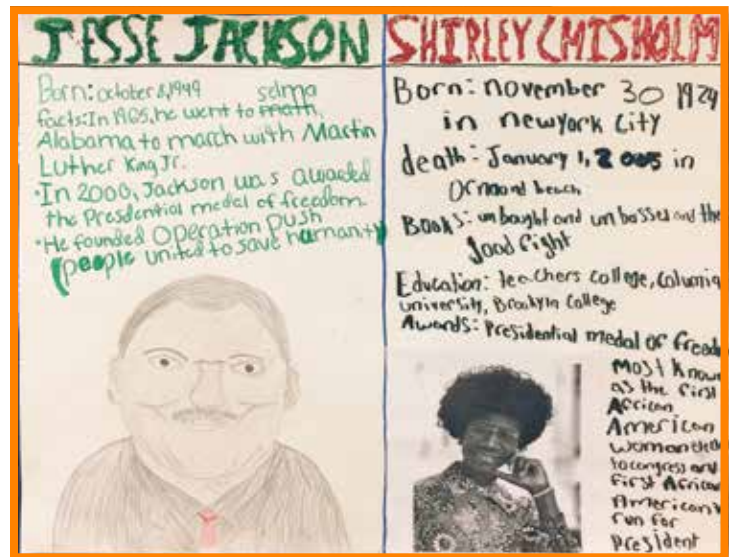 JESSE JACKSON
Born: october 8, 1949
selma
facts: In 1965, he went to math,
Alabama to march with Martin
Luther King Jr.
•In 2000, Jackson was awarded
the Presdential medal of freedom.
•He founded Operation push
(people united to save humanity)
SHIRLEY CHISHOLM
Born: november 30 1924
in newyork City
death: January 1, 2005 in
Ormond beach
Books: unbought and unbossed and the
good fight
Education: teachers college, Columbia
university, Brooklyn College
Awards: Presidential medal of freedo
Most Known
as the first
African
American
woman
to congress and
first African
American
run for
President